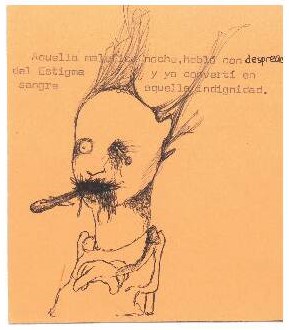 Aquella maldita noche, habló con desprecio
del Estigma y yo convertí en
sangre aquella indignidad.